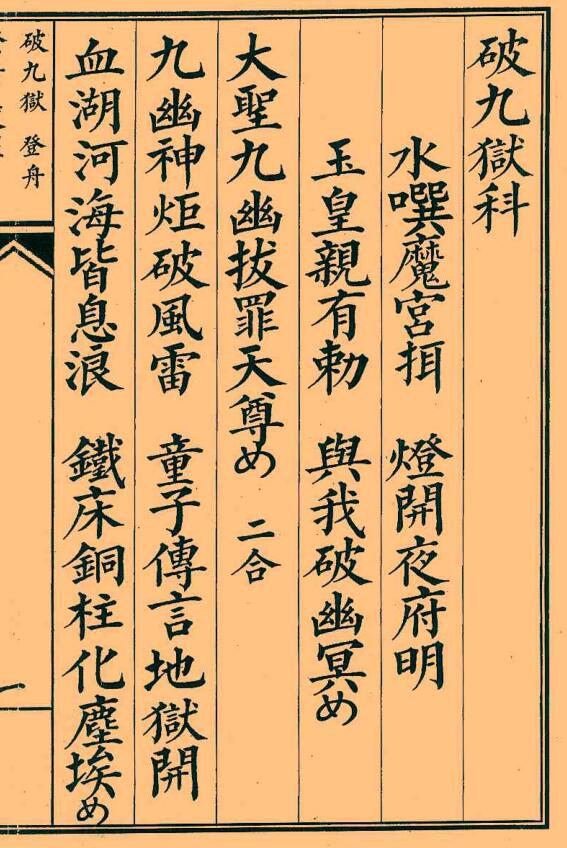 破九獄科
水噀魔宮拑 燈開夜府明
玉皇親有勅 與我破幽冥め
大聖九幽拔罪天尊め 二合
九幽神炬破風雷 童子傳言地獄開
血湖河海皆息浪 鐵床銅柱化塵埃め
破九獄 登舟
一